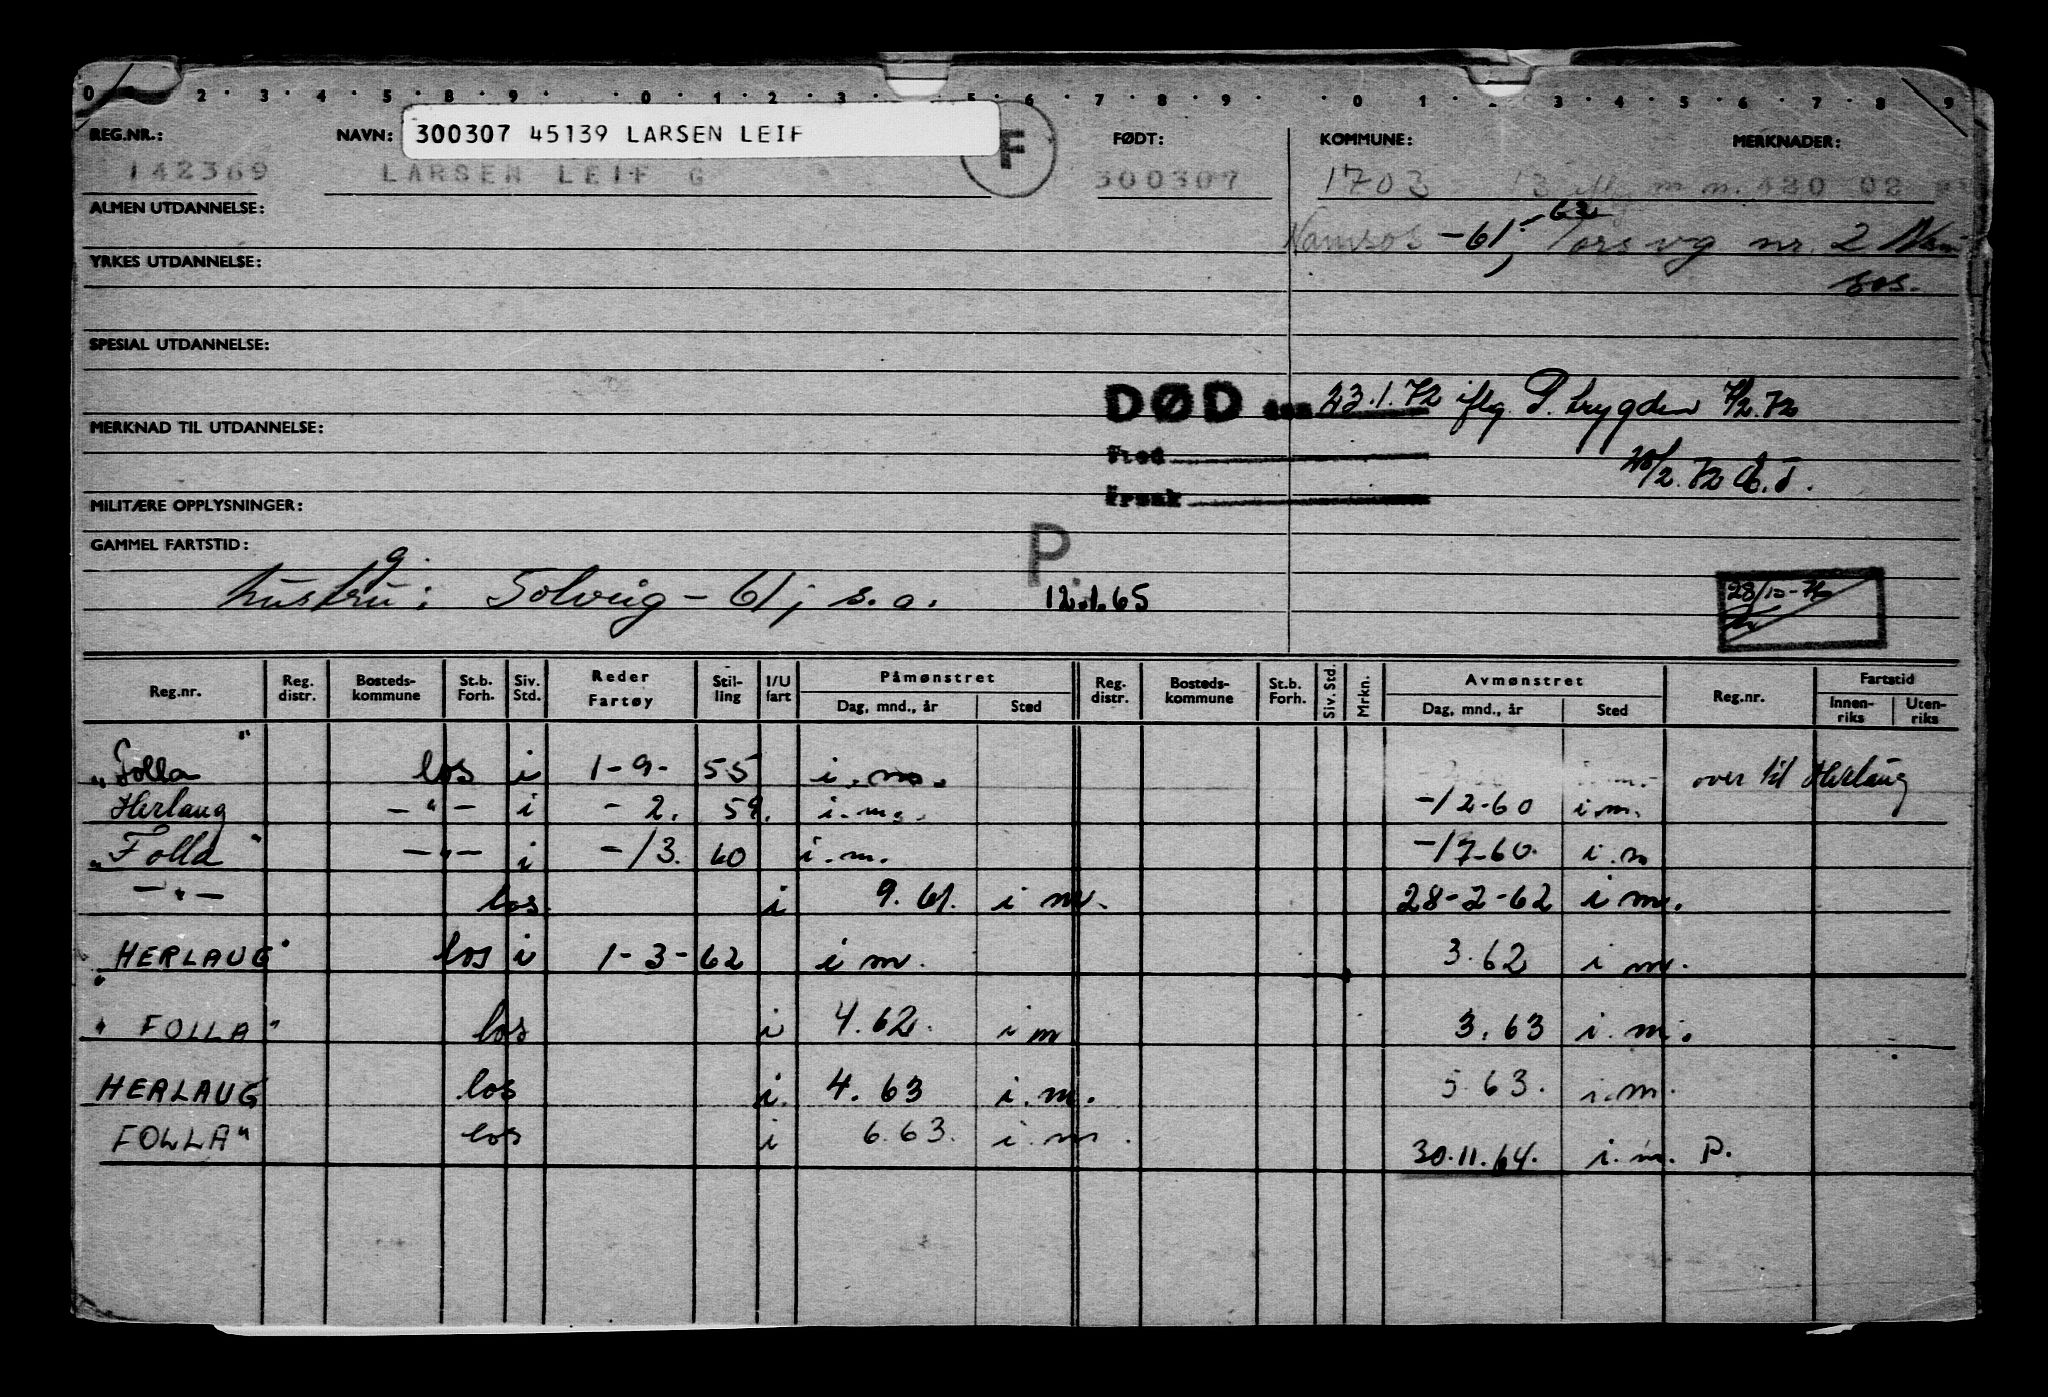 0 2 3 4 5 8 9 0 1 2 3 5 6 7 8 9 0 1 2 3 4 5 6 7 8 9
REG.NR.: NAVN: 300307 45139 LARSEN LEIF F FØDT: KOMMUNE: MERKNADER:
142369 LARSEN LEIF G 300307 1703 - 13 m n. 420 02
ALMEN UTDANNELSE:
Namsos -61, -62 vg nr. 2 Nam
sos.
YRKES UTDANNELSE:
SPESIAL UTDANNELSE:
DØD den 23.1.72 iflg P. trygden 7/2.72
MERKNAD TIL UTDANNELSE:
Sted
/2.72
MILITÆRE OPPLYSNINGER:
Årsak
GAMMEL FARTSTID:
P.
hustru: g. Solveig - 61; s.a. 12.1.65 28/10-76
Reg.nr. Reg. distr. Bosteds-kommune St.b. Forh. Siv. Std. Reder Fartøy Stil-ling I/U fart Påmønstret Dag, mnd., år Sted Reg. distr. Bosteds-kommune St.b. Forh. Siv. Std. Mrkn. Avmønstret Dag, mnd., år Sted Reg.nr. Fartstid Innen-riks Uten-riks
"Folla" los i 1-9-55 i.m. over til Herlaug
Herlaug -"- i -2. 59. i.m. -12-60 i.m.
"Folla" -"- i -/3. 60 i.m. -17-60. i.m
-"- los. i 9.61. i m. 28-2-62 i m.
"HERLAUG" los i 1-3-62 i m. 3.62 i m.
"FOLLA" los i 4.62. i m 3.63 i.m.
HERLAUG los i. 4.63 i.m. 5 63. i.m.
FOLLA" los i 6.63. i.m. 30.11.64. i.m. P.